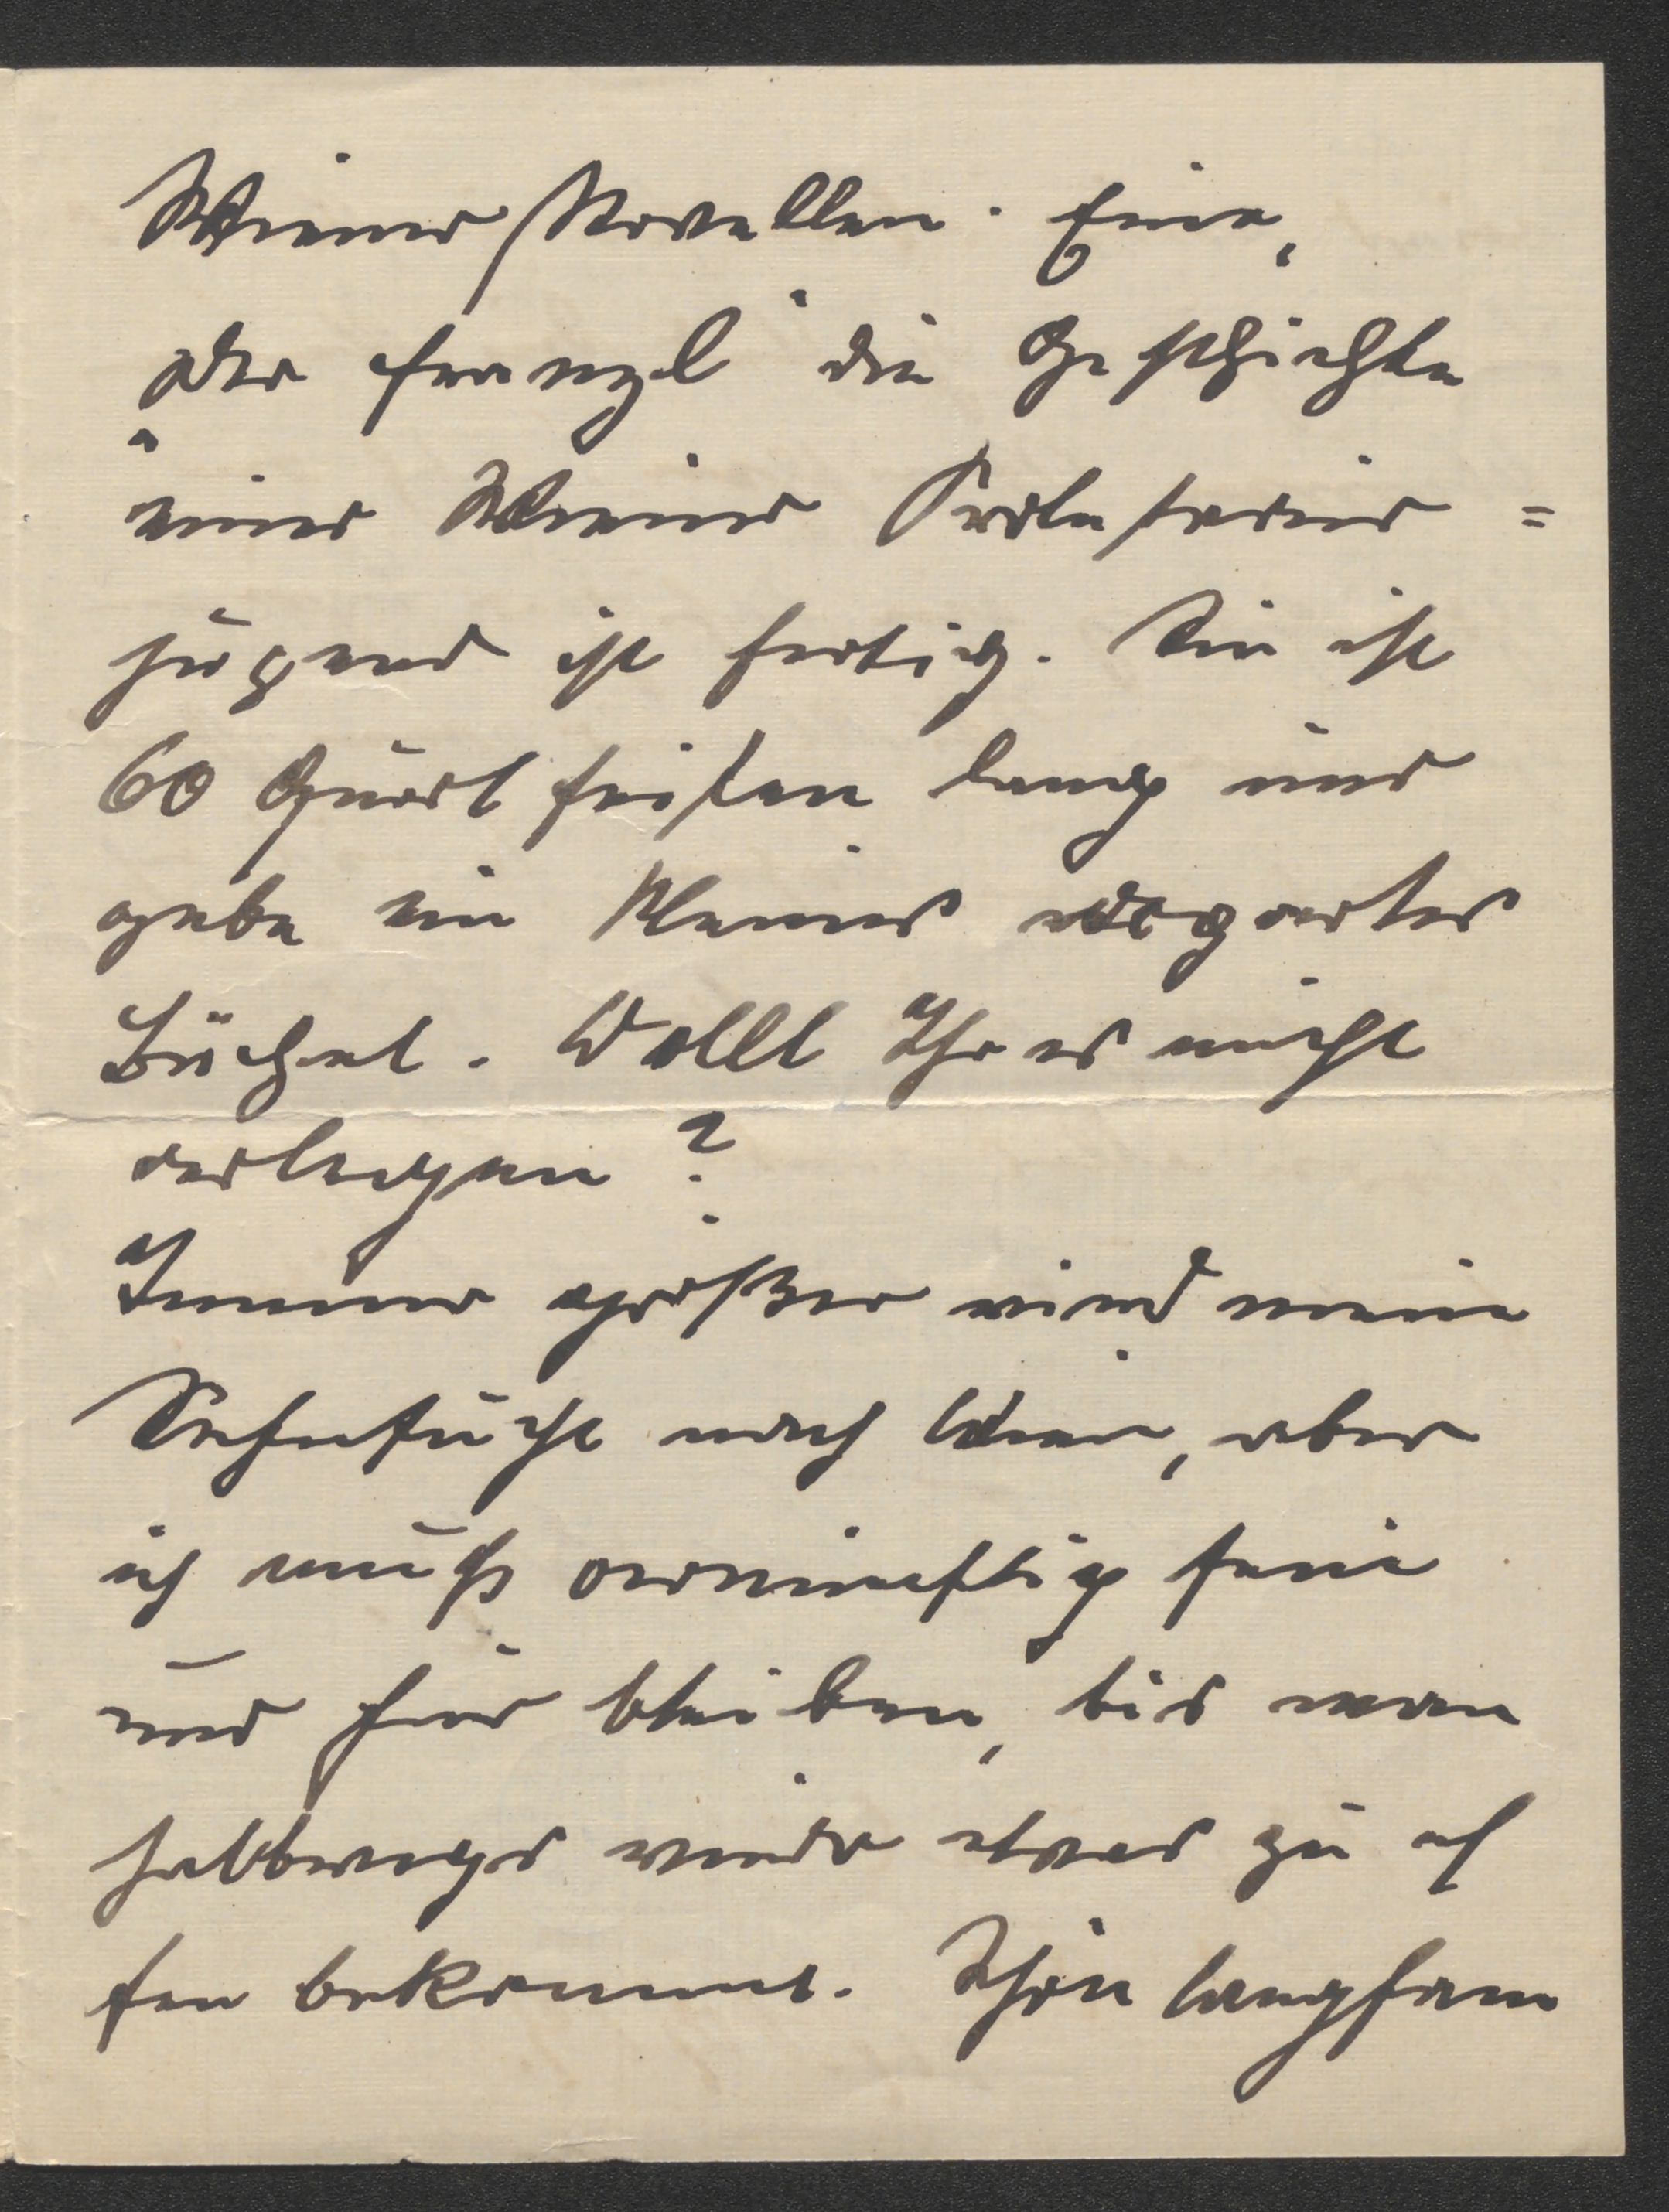 Wiener Novellen. Eine,
„Der Franzl“ die Geschichte
einer Wiener Proletarier=
jugend ist fertig. Sie ist
60 Quartseiten lang und
gäbe ein kleines apartes
Büchel. Wollt Ihr es nicht
verlegen?
Immer größer wird meine
Sehnsucht nach Wien, aber
ich muß vernünftig sein
und hier bleiben, bis man
halbwegs wieder etwas zu es
sen bekommt. Schön langsam